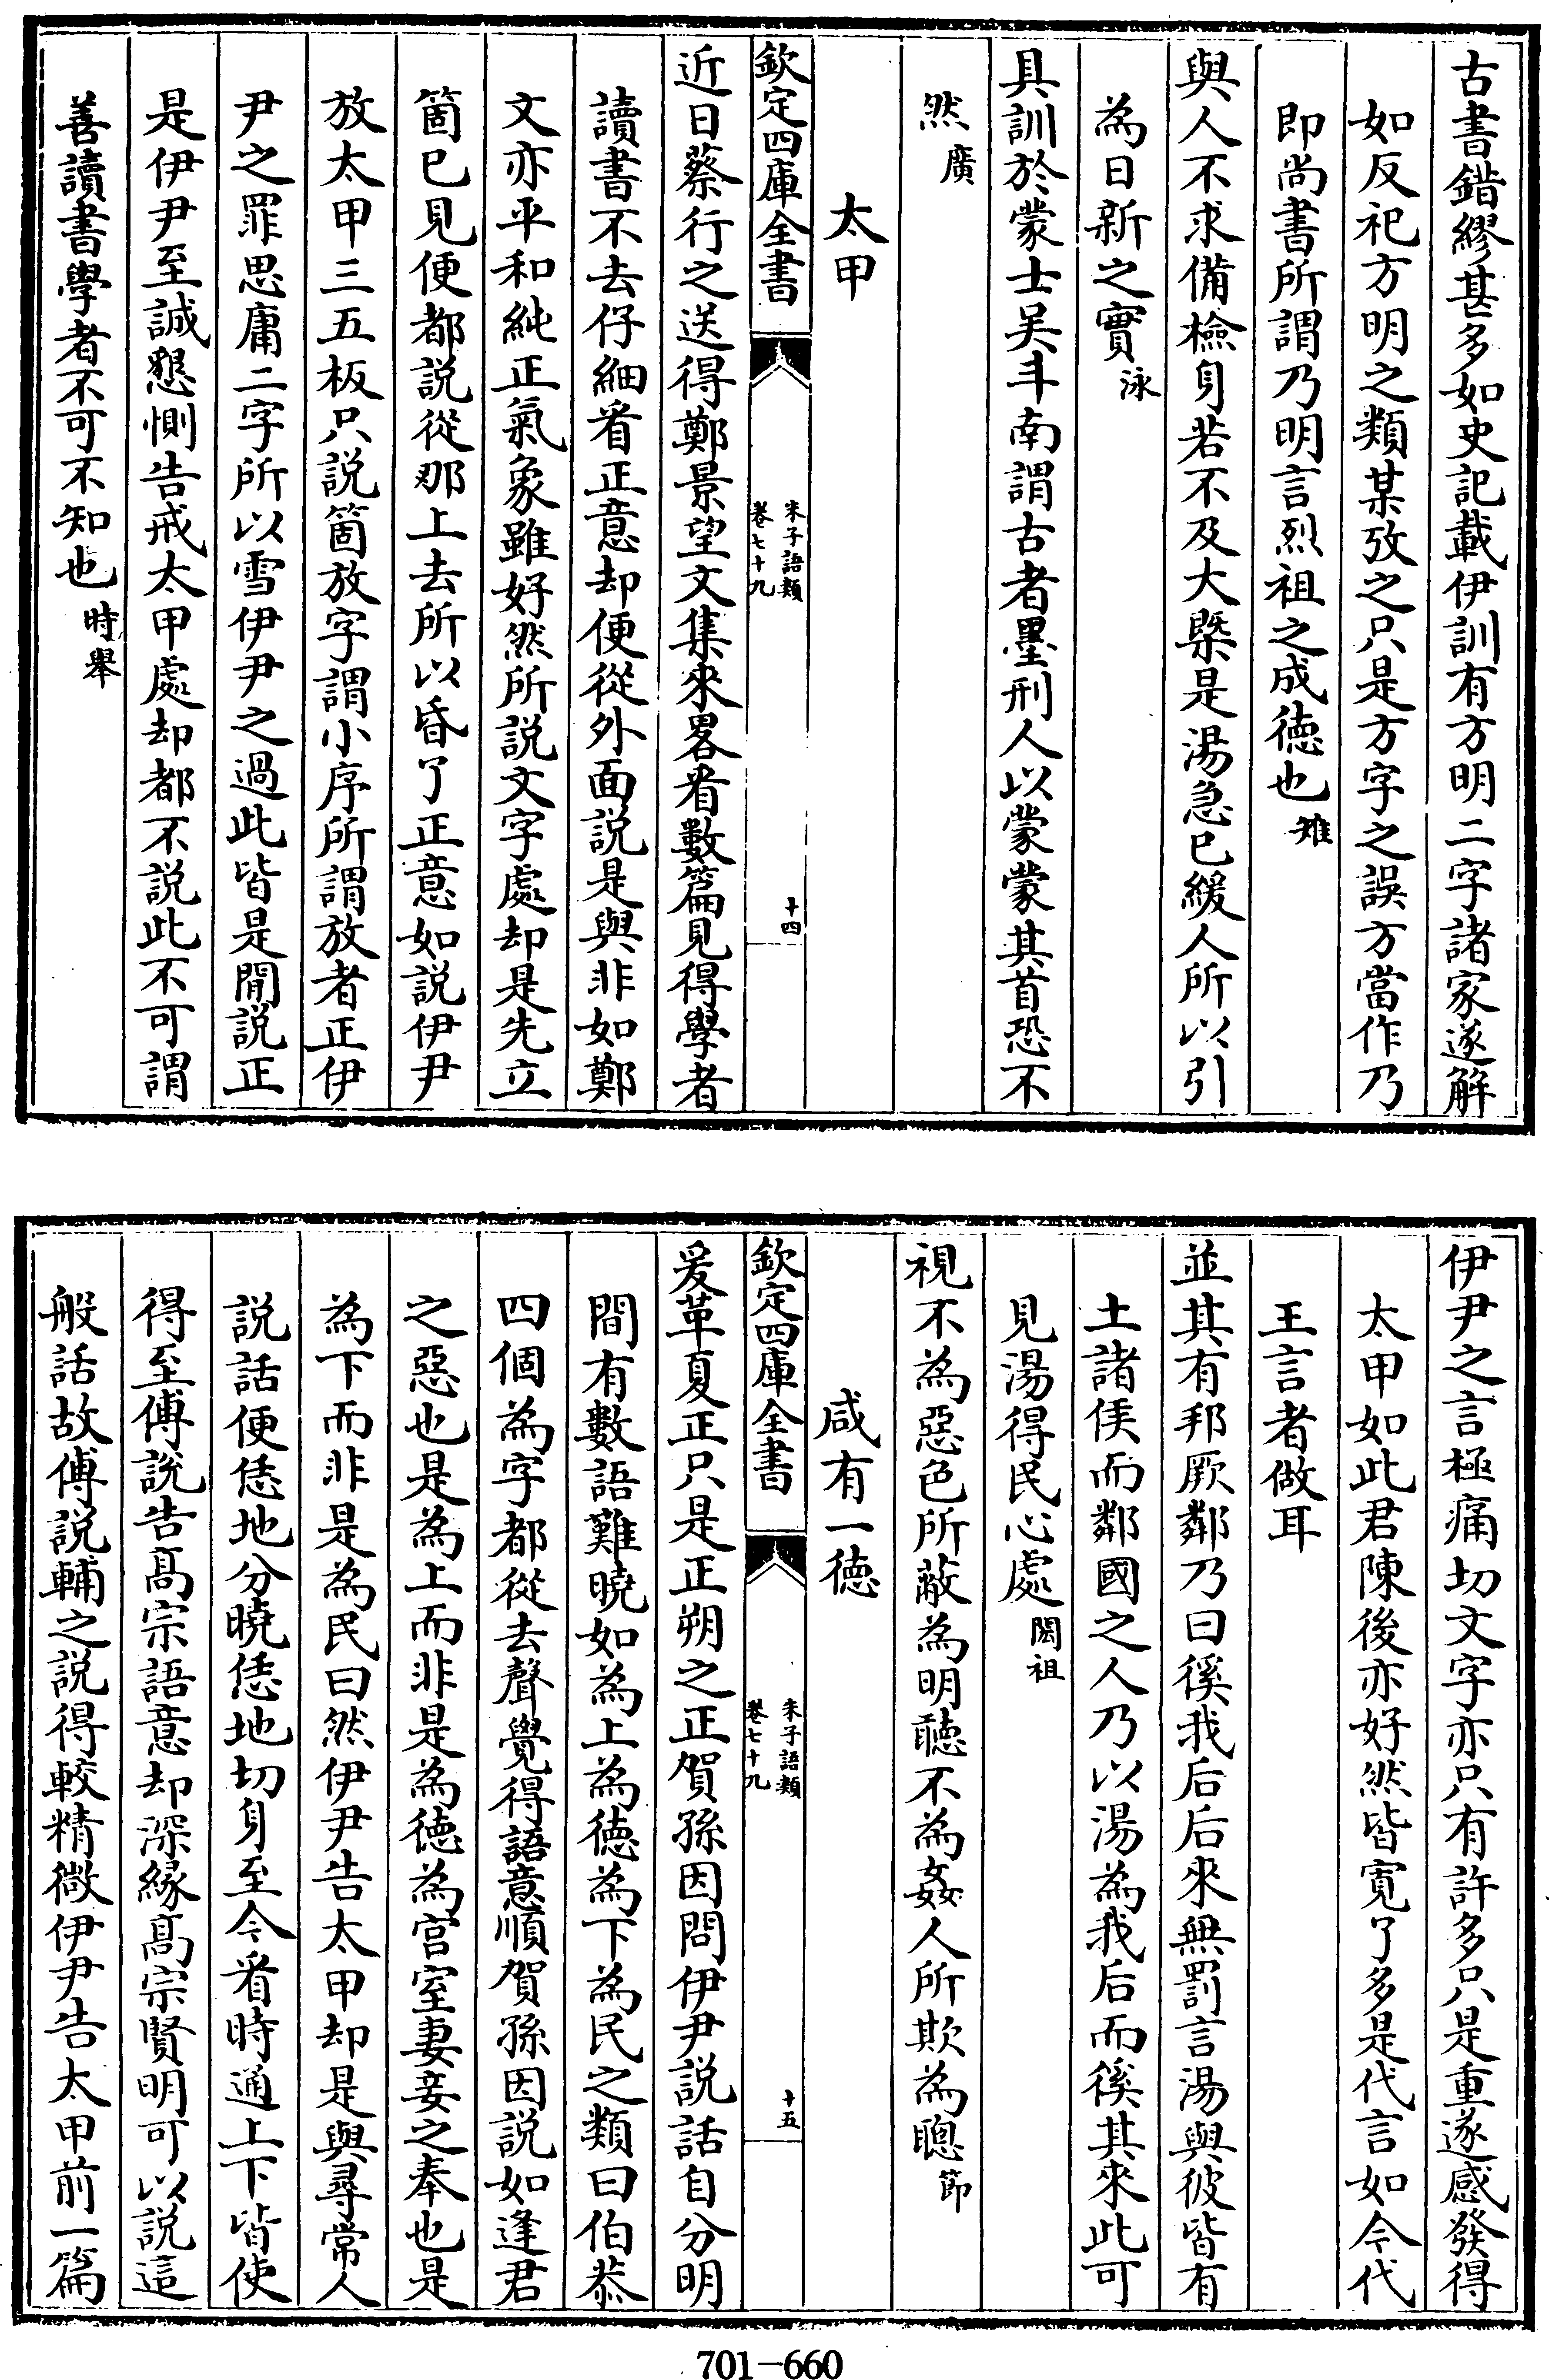 古書錯繆甚多如史記載伊訓有方明二字諸家遂解
如反祀方明之類某攷之只是方字之誤方當作乃
即尚書所謂乃明言烈祖之成徳也雉
與人不求備檢身若不及大槩是湯急已緩人所以引
為日新之實泳
具訓於蒙士吴斗南謂古者墨刑人以蒙蒙其首恐不
然廣
太甲
欽定四庫全書
朱子語類
卷七十九
十四
近日蔡行之送得鄭景望文集來畧看數篇見得學者
讀書不去仔細看正意却便從外面説是與非如鄭
文亦平和純正氣象雖好然所説文字處却是先立
箇已見便都説從那上去所以昏了正意如説伊尹
放太甲三五板只説箇放字謂小序所謂放者正伊
尹之罪思庸二字所以雪伊尹之過此皆是閒説正
是伊尹至誠懇惻告戒太甲處却都不説此不可謂
善讀書學者不可不知也時舉
伊尹之言極痛切文字亦只有許多只是重遂感發得
太甲如此君陳後亦好然皆寛了多是代言如今代
王言者做耳
並其有邦厥鄰乃曰徯我后后來無罰言湯與彼皆有
土諸侯而鄰國之人乃以湯為我后而徯其來此可
見湯得民心處閎祖
視不為惡色所蔽為明聽不為姦人所欺為聰節
咸有一徳
欽定四庫全書
朱子語類
卷七十九
十五
爰革夏正只是正朔之正賀孫因問伊尹説話自分明
間有數語難曉如為上為徳為下為民之類曰伯恭
四個為字都從去聲覺得語意順賀孫因説如逢君
之惡也是為上而非是為徳為宫室妻妾之奉也是
為下而非是為民曰然伊尹告太甲却是與尋常人
説話便恁地分曉恁地切身至今看時通上下皆使
得至傅説告髙宗語意却深緣髙宗賢明可以説這
般話故傅説輔之説得較精微伊尹告太甲前一篇
701-660